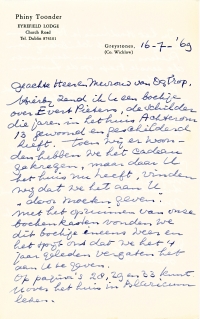 Phiny Toonder
EYREFIELD LODGE
Church Road
Tel. Dublin 875531
Greystones,
(Co. Wicklow)
16-7-'69
Geachte Heer en Mevrouw van
Hierbij zend ik U een boekje
over Evert Pieters, de schilder
die jaren in het huis
gewoond en geschilderd
heeft. Toen wij er woon-
den hebben we het cadeau
gekregen, maar daar U
het huis nu heeft, vinden
wij dat we het aan U
door moeten geven!
Met het opruimen van onze
boekenkasten vonden we
dit boekje weer en
het spijt ons dat we het 4
jaar geleden vergaten het
aan U te geven.
Op pagina's 28, 29 en 33 kunt
U over het huis in Blaricum
lezen.